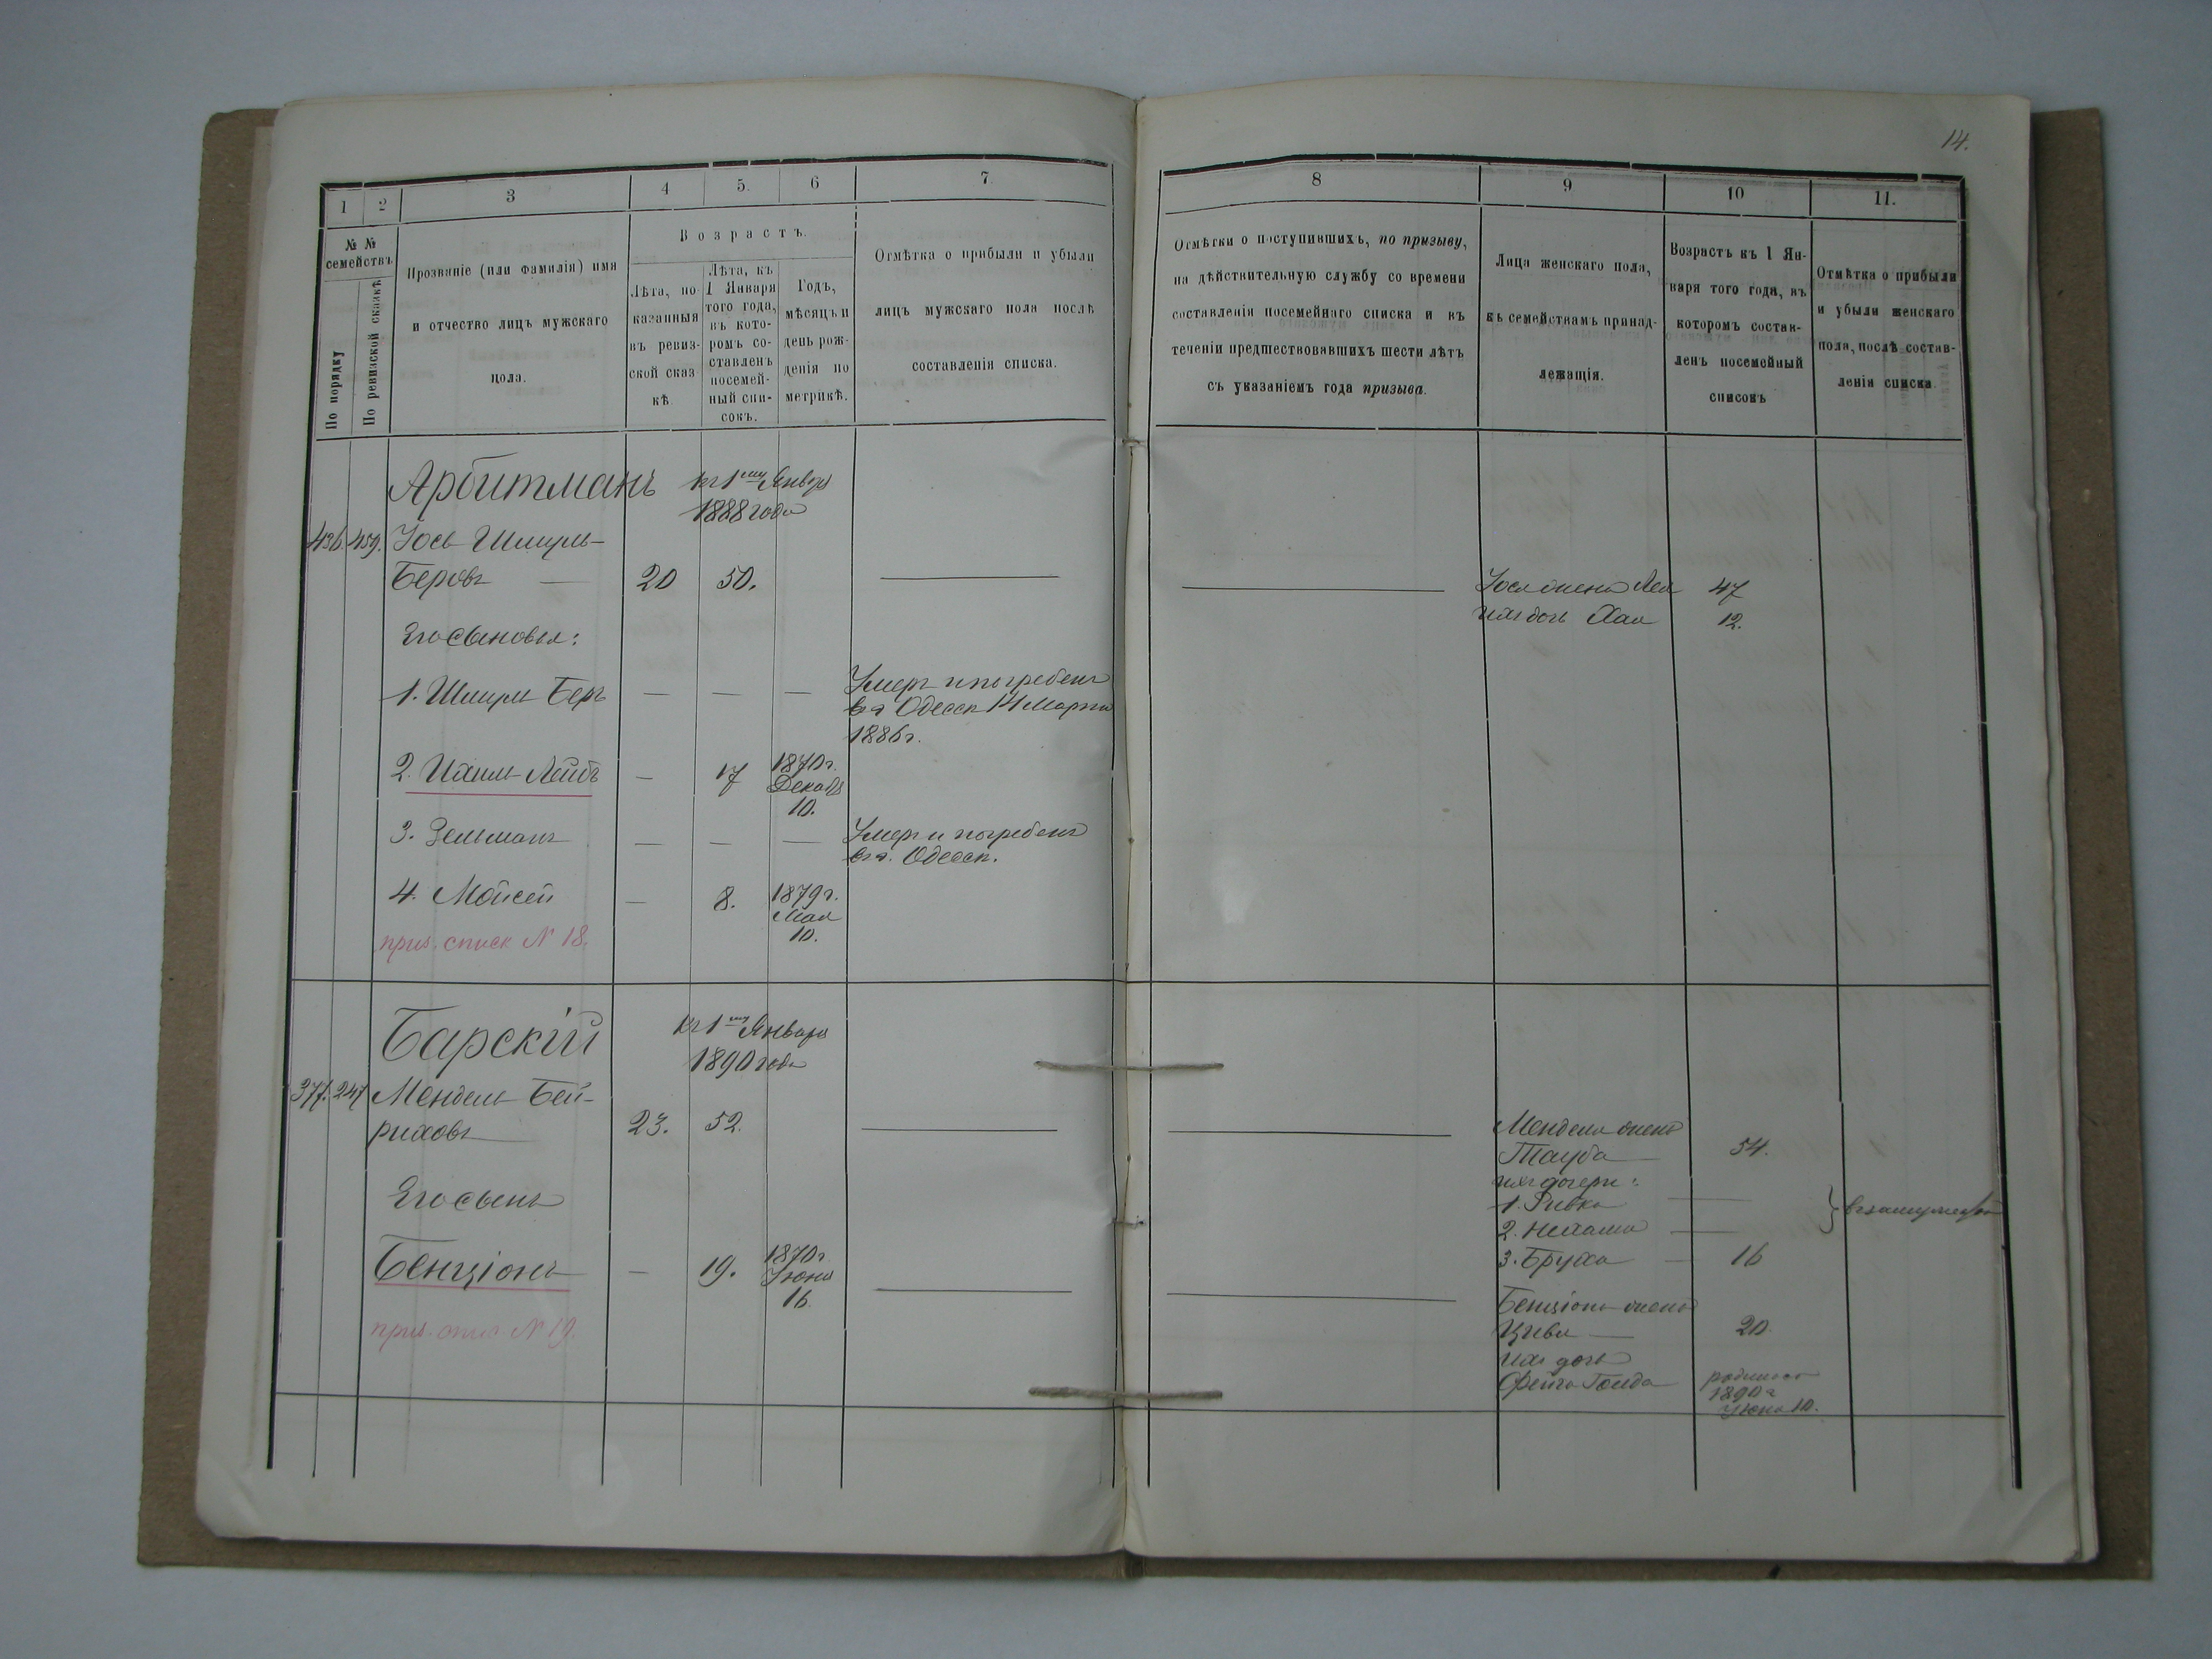 14.
1
2
3
4
5.
6
7
№ №
семействъ
По порядку
По ревизской сказкѣ
Прозваніе (или фамилія) имя
и отчество лицъ мужскаго
пола.
Возрастъ.
Лѣта, по-
казанныя
въ ревиз-
ской сказ-
кѣ.
Лѣта, къ
1 Января
того года,
въ кото-
ромъ со-
ставленъ
посемей-
ный спи-
сокъ.
Годъ,
мѣсяцъ и
день рож-
денія по
метрикѣ.
Отмѣтка о прибыли и убыли
лицъ мужскаго пола послѣ
составленія списка.
Арбитманъ
къ 1му Января
1888 года
436. 459. Іось Шмуль-
Беровъ — 20 50.
Его сыновья:
1. Шмуль Беръ — — — Умеръ и погребенъ
въ г. Одессѣ 14 Марта
1886 г.
2. Ихиль-Лейбъ — 17 1870 г.
Декабря
10.
3. Зельманъ — — — Умеръ и погребенъ
въ г. Одессѣ.
4. Мойсей — 8. 1879 г.
Мая
10.
приз. списк № 18.
Барскій
къ 1му Января
1890 года
377. 247 Мендель Бей-
риховъ 23. 52.
Его сынъ
Бенціонъ — 19. 1870 г.
Іюня
16.
приз. спис № 19.
8
9
10
11.
Отмѣтки о поступившихъ, по призыву,
на дѣйствительную службу со времени
составленія посемейнаго списка и въ
теченіи предшествовавшихъ шести лѣтъ
съ указаніемъ года призыва.
Лица женскаго пола,
къ семействамъ принад-
лежащія.
Возрастъ къ 1 Ян-
варя того года, въ
которомъ состав-
ленъ посемейный
списокъ
Отмѣтка о прибыли
и убыли женскаго
пола, послѣ состав-
ленія списка.
Іося жена Лея 47
ихъ дочь Хая 12.
Менделя жена
Тауба 54.
ихъ дочери:
1. Ривка —
2. Нехама — } въ замужествѣ
3. Бруха — 16
Бенціона жена
Цивья — 20.
ихъ дочь
Фейга Голда родилась
1890 г.
Іюня 10.